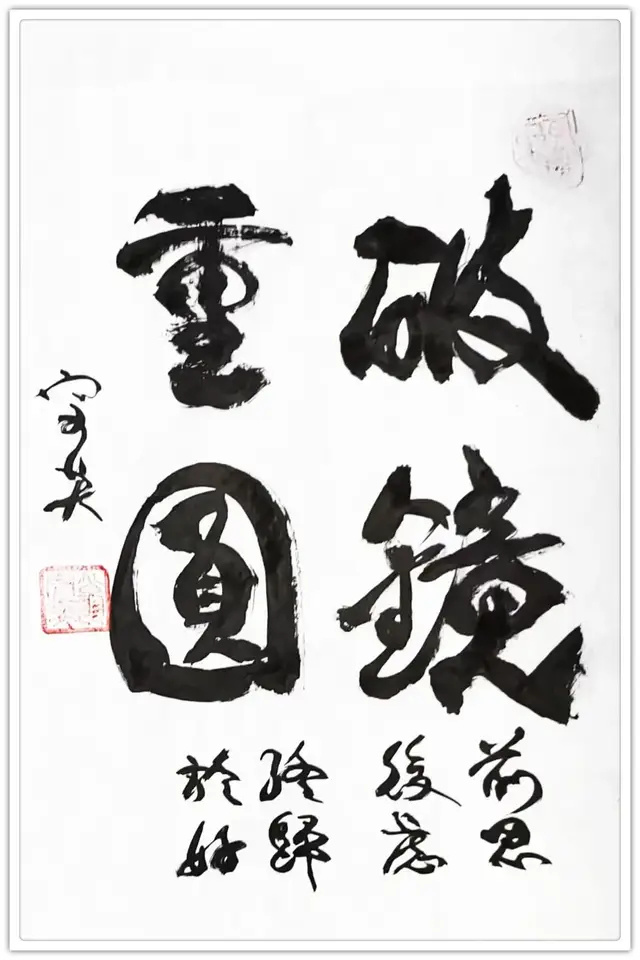 破鏡
重圓
前思
後慮
終歸
於好